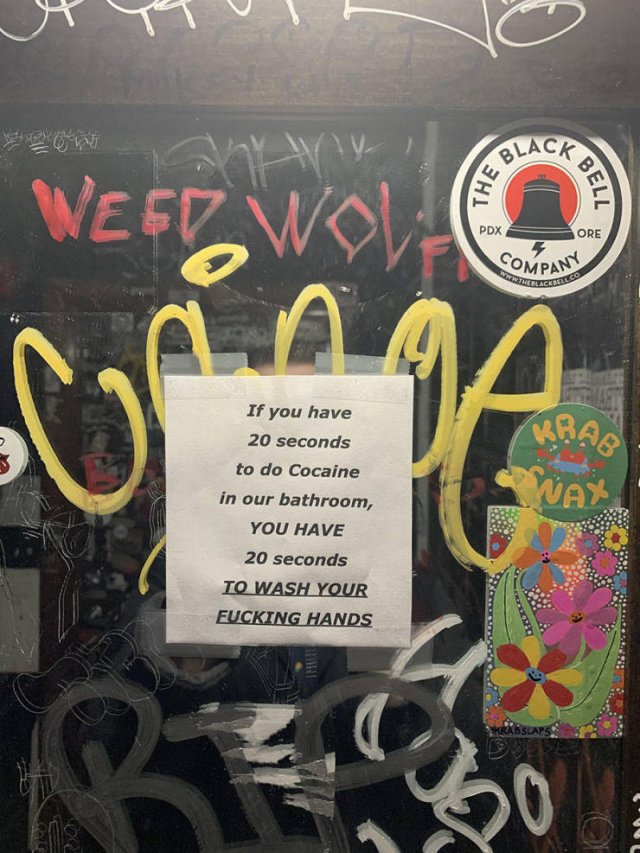 WEED WOLF
THE BLACK BELL
PDX ORE
COMPANY
WWW.THEBLACKBELL.CO
If you have
20 seconds
to do Cocaine
in our bathroom,
YOU HAVE
20 seconds
TO WASH YOUR
FUCKING HANDS
KRAB
SNAX
KRABSLAPS
RIP